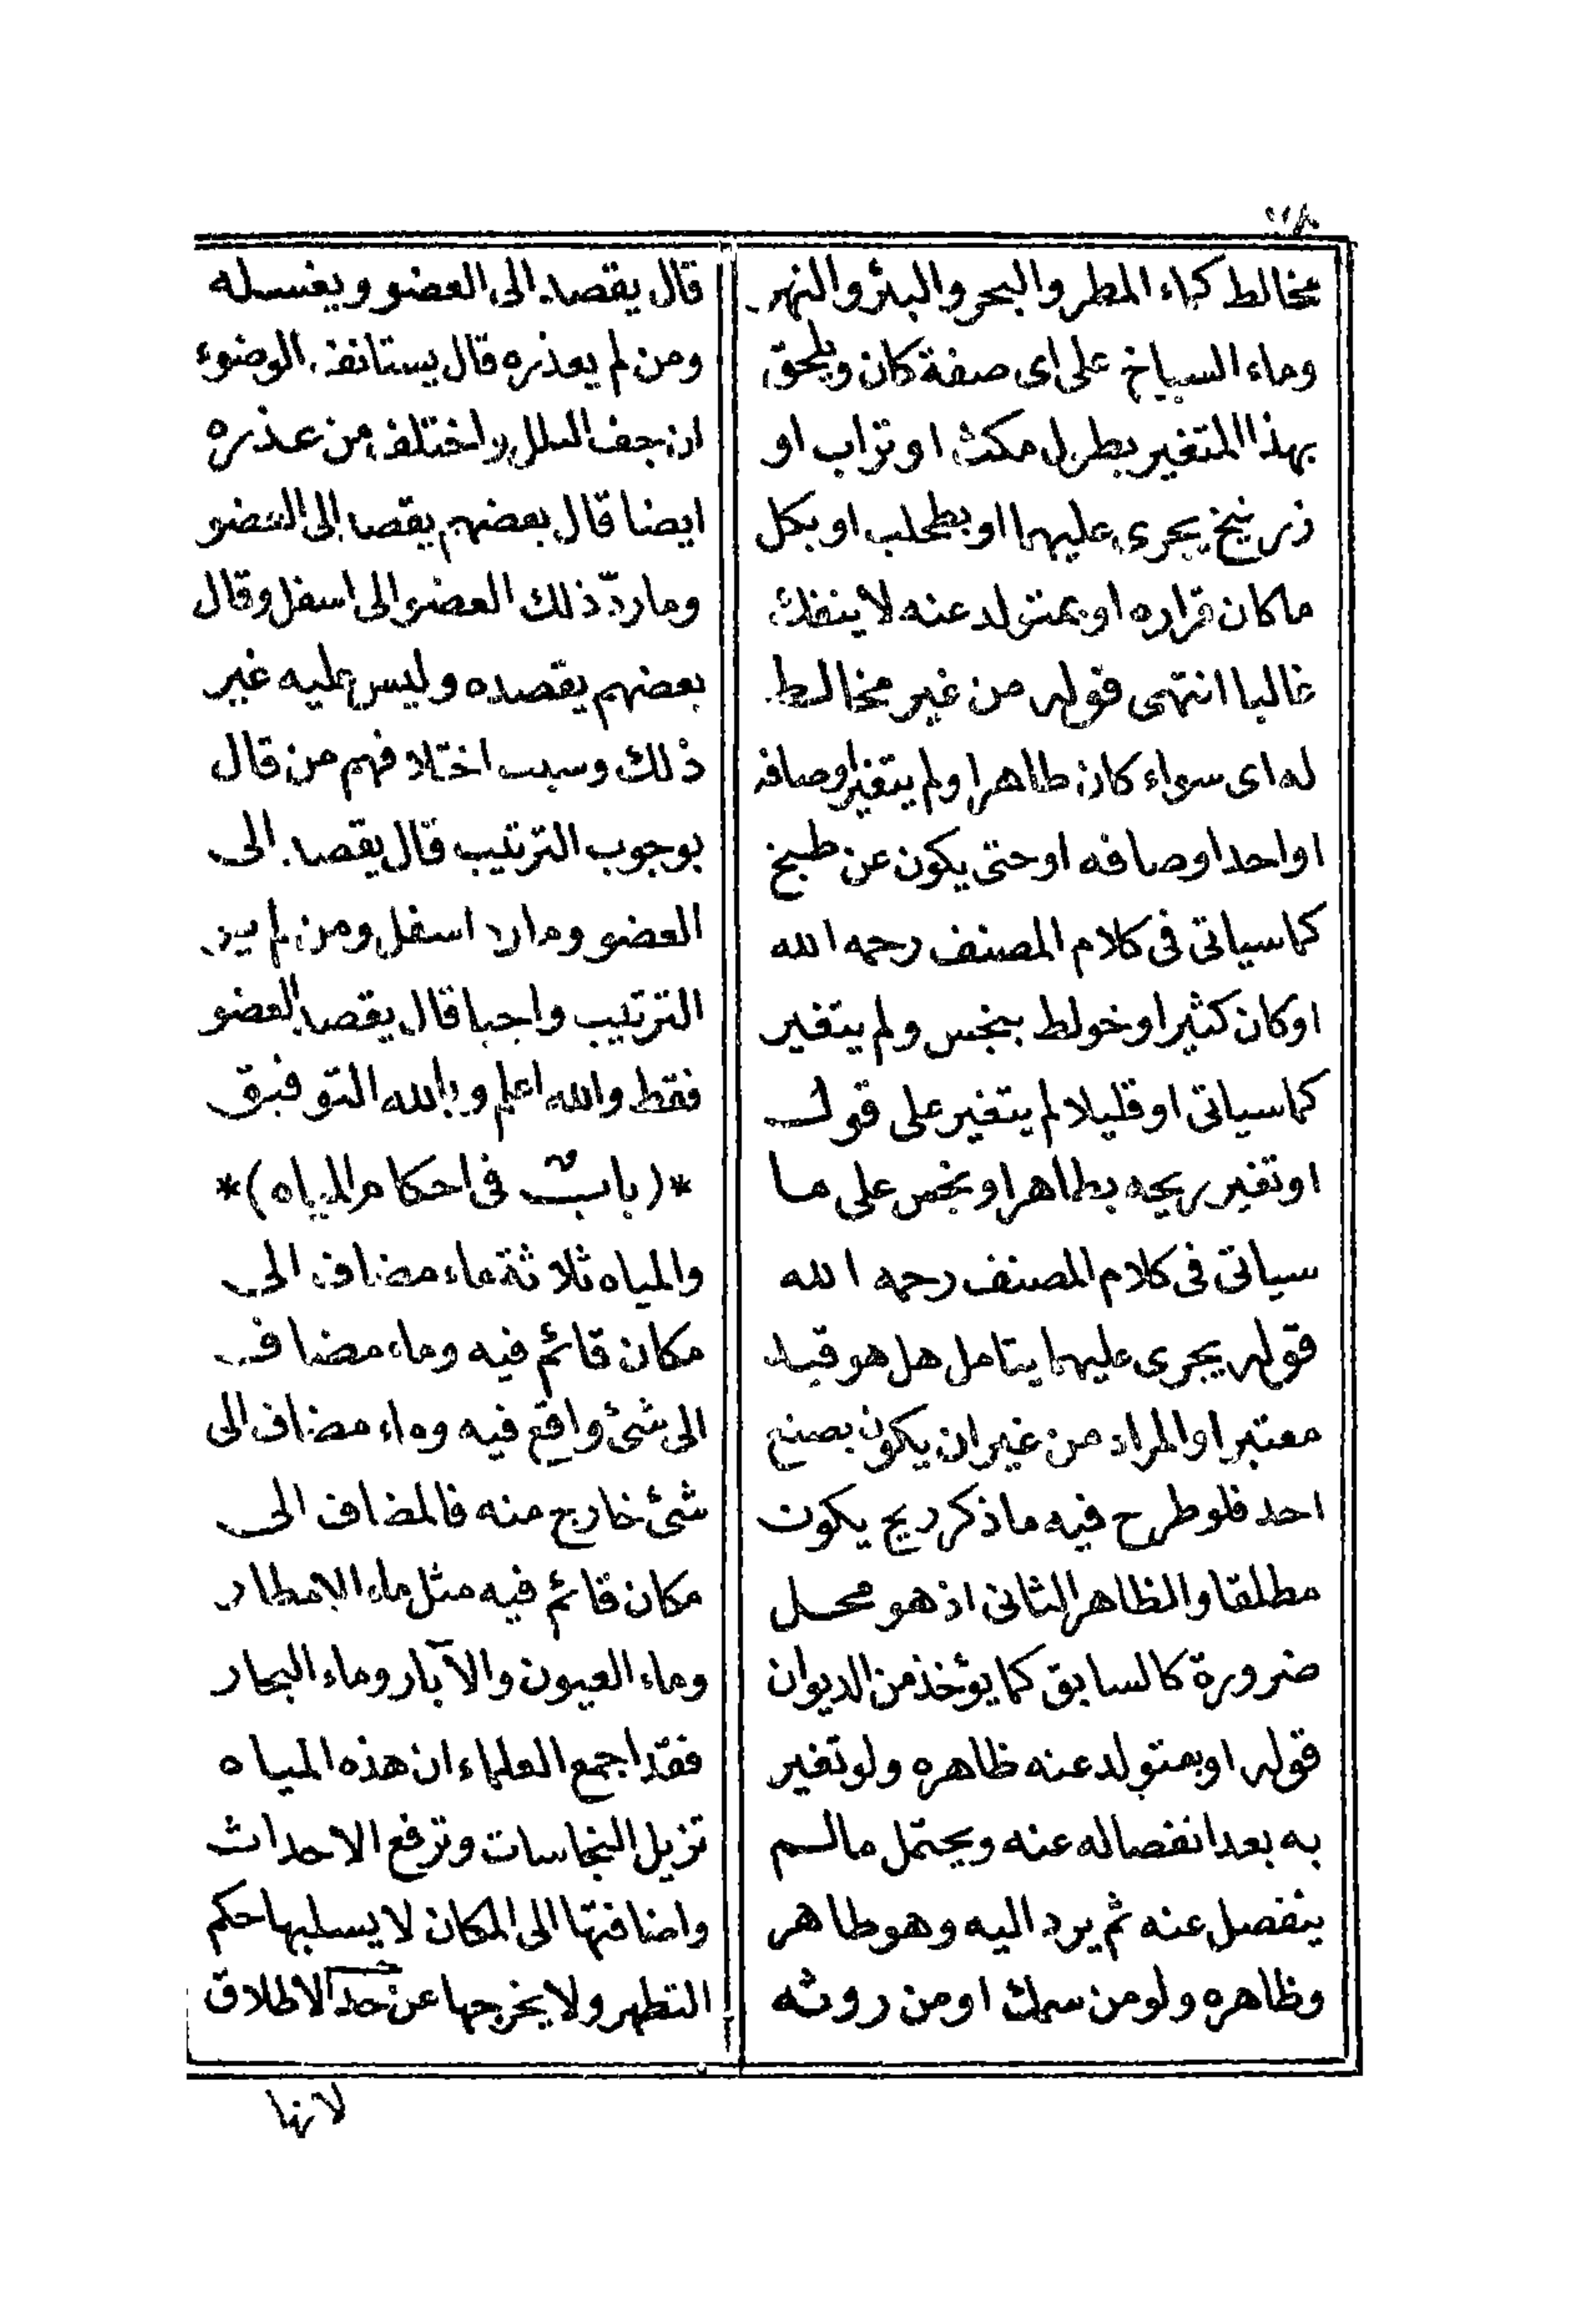 مخالط كماء المطر والبحر والبئر والنهر
وماء السباخ على اى صفة كان ويلحق
بهذا المتغير بطول مكث او تراب او
زرنيخ يجرى عليهما او بطحلب او بكل
ماكان قراره او بمتولد عنه لا ينفك
غالبا انتهى قوله من غير مخالط
له اى سواء كان طاهرا ولم يتغير اوصافه
او احد اوصافه او حتى يكون عن طبخ
كما سياتى فى كلام المصنف رحمه الله
او كان كثيرا وخولط بنجس ولم يتغير
كما سياتى او قليلا لم يتغير على قول
او تغير ريحه بطاهر او نجس على ما
سياتى فى كلام المصنف رحمه الله
قوله يجرى عليهما يتامل هل هو قيد
معتبر او المراد من غير ان يكون بصنع
احد فلو طرح فيه ماذكر ريح يكون
مطلقا والظاهر الثانى اذ هو محل
ضرورة كالسابق كما يؤخذ من الديوان
قوله او بمتولد عنه ظاهره ولو تغير
به بعد انفصاله عنه ويحتمل مالم
ينفصل عنه ثم يرد اليه وهو طاهر
وظاهره ولو من سمك او من روثه
قال يقصد الى العضو ويغسله
ومن لم يعذره قال يستانف الوضوء
ان جف البلل واختلف من عذره
ايضا قال بعضهم يقصد الى العضو
وماردّ ذلك العضو الى اسفل وقال
بعضهم يقصده وليس عليه غير
ذلك وسبب اختلافهم من قال
بوجوب الترتيب قال يقصد الى
العضو ومارد اسفل ومن لم يرد
الترتيب واجبا قال يقصد العضو
فقط والله اعلم وبالله التوفيق
*(بابٌ فى احكام المياه)*
والمياه ثلاثة ماء مضاف الى
مكان قائم فيه وماء مضاف
الى شئ واقع فيه وماء مضاف الى
شئ خارج منه فالمضاف الى
مكان قائم فيه مثل ماء الامطار
وماء العيون والآبار وماء البحار
فقد اجمع العلماء ان هذه المياه
تزيل النجاسات وترفع الاحداث
واضافتها الى المكان لا يسلبها حكم
التطهر ولا يخرجها عن حد الاطلاق
لانها